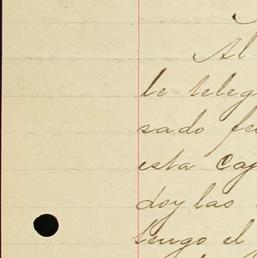 Al
le teleg
sado fe
esta cap
doy las
tengo el